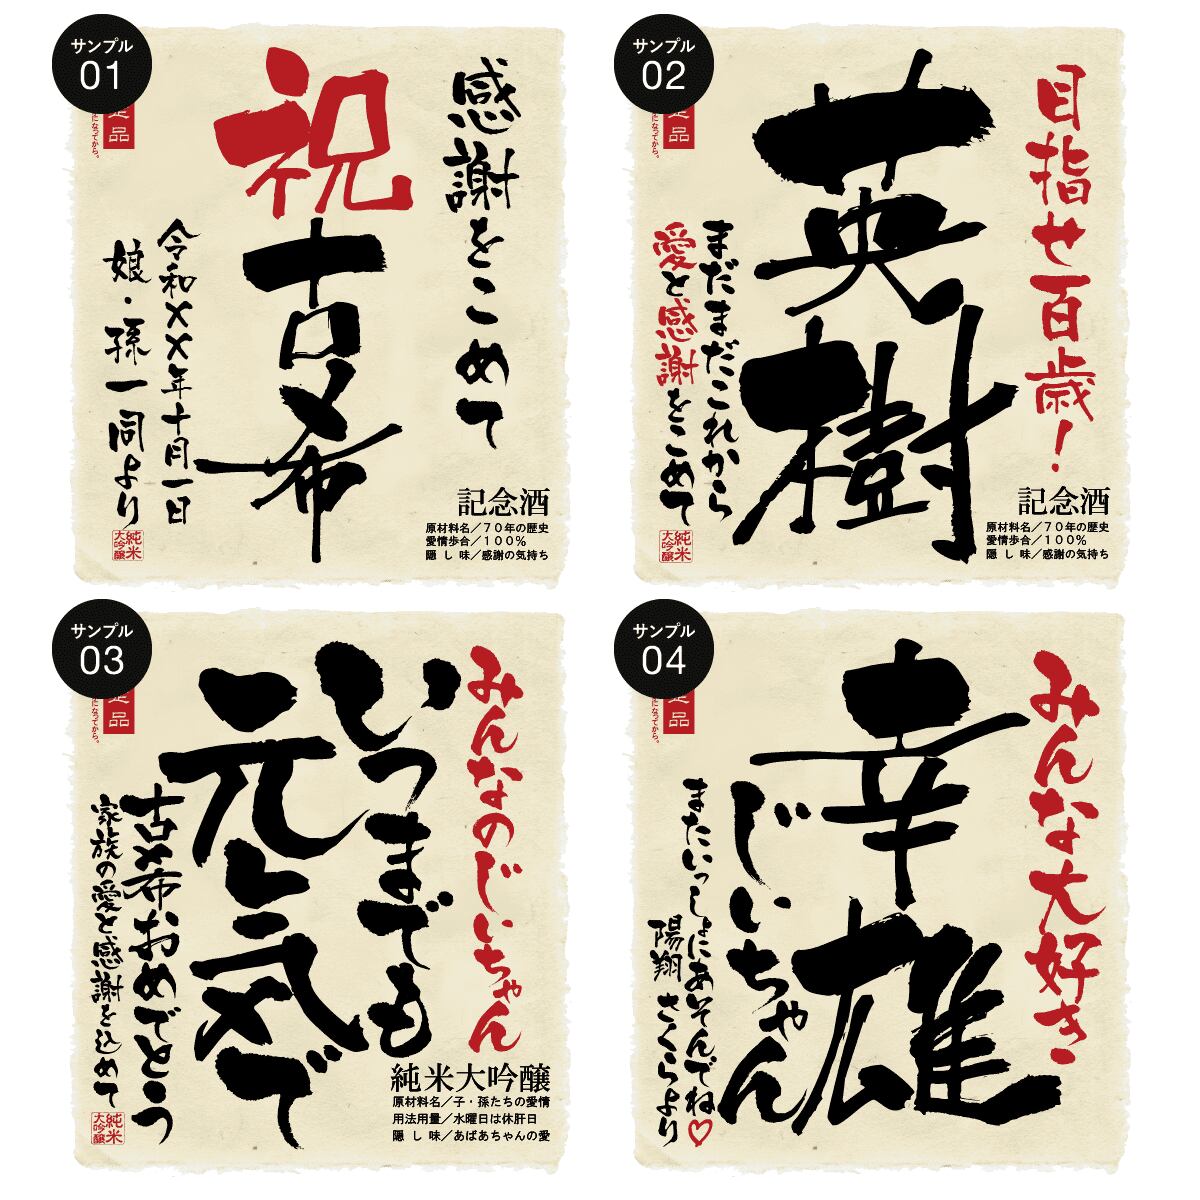 サンプル
01
感謝をこめて
祝
古希
令和××年十月一日
娘・孫一同より
品
になってから。
記念酒
原材料名／70年の歴史
愛情歩合／100%
隠し味／感謝の気持ち
純米
大吟醸
サンプル
02
目指せ百歳！
英樹
まだまだこれから
愛と感謝をこめて
品
になってから。
記念酒
原材料名／70年の歴史
愛情歩合／100%
隠し味／感謝の気持ち
純米
大吟醸
サンプル
03
みんなのじいちゃん
いつまでも
元気で
古希おめでとう
家族の愛と感謝を込めて
品
になってから。
純米大吟醸
原材料名／子・孫たちの愛情
用法用量／水曜日は休肝日
隠し味／あばあちゃんの愛
純米
大吟醸
サンプル
04
みんな大好き
幸雄
じいちゃん
またいっしょにあそんでね♡
陽翔 さくらより
品
になってから。